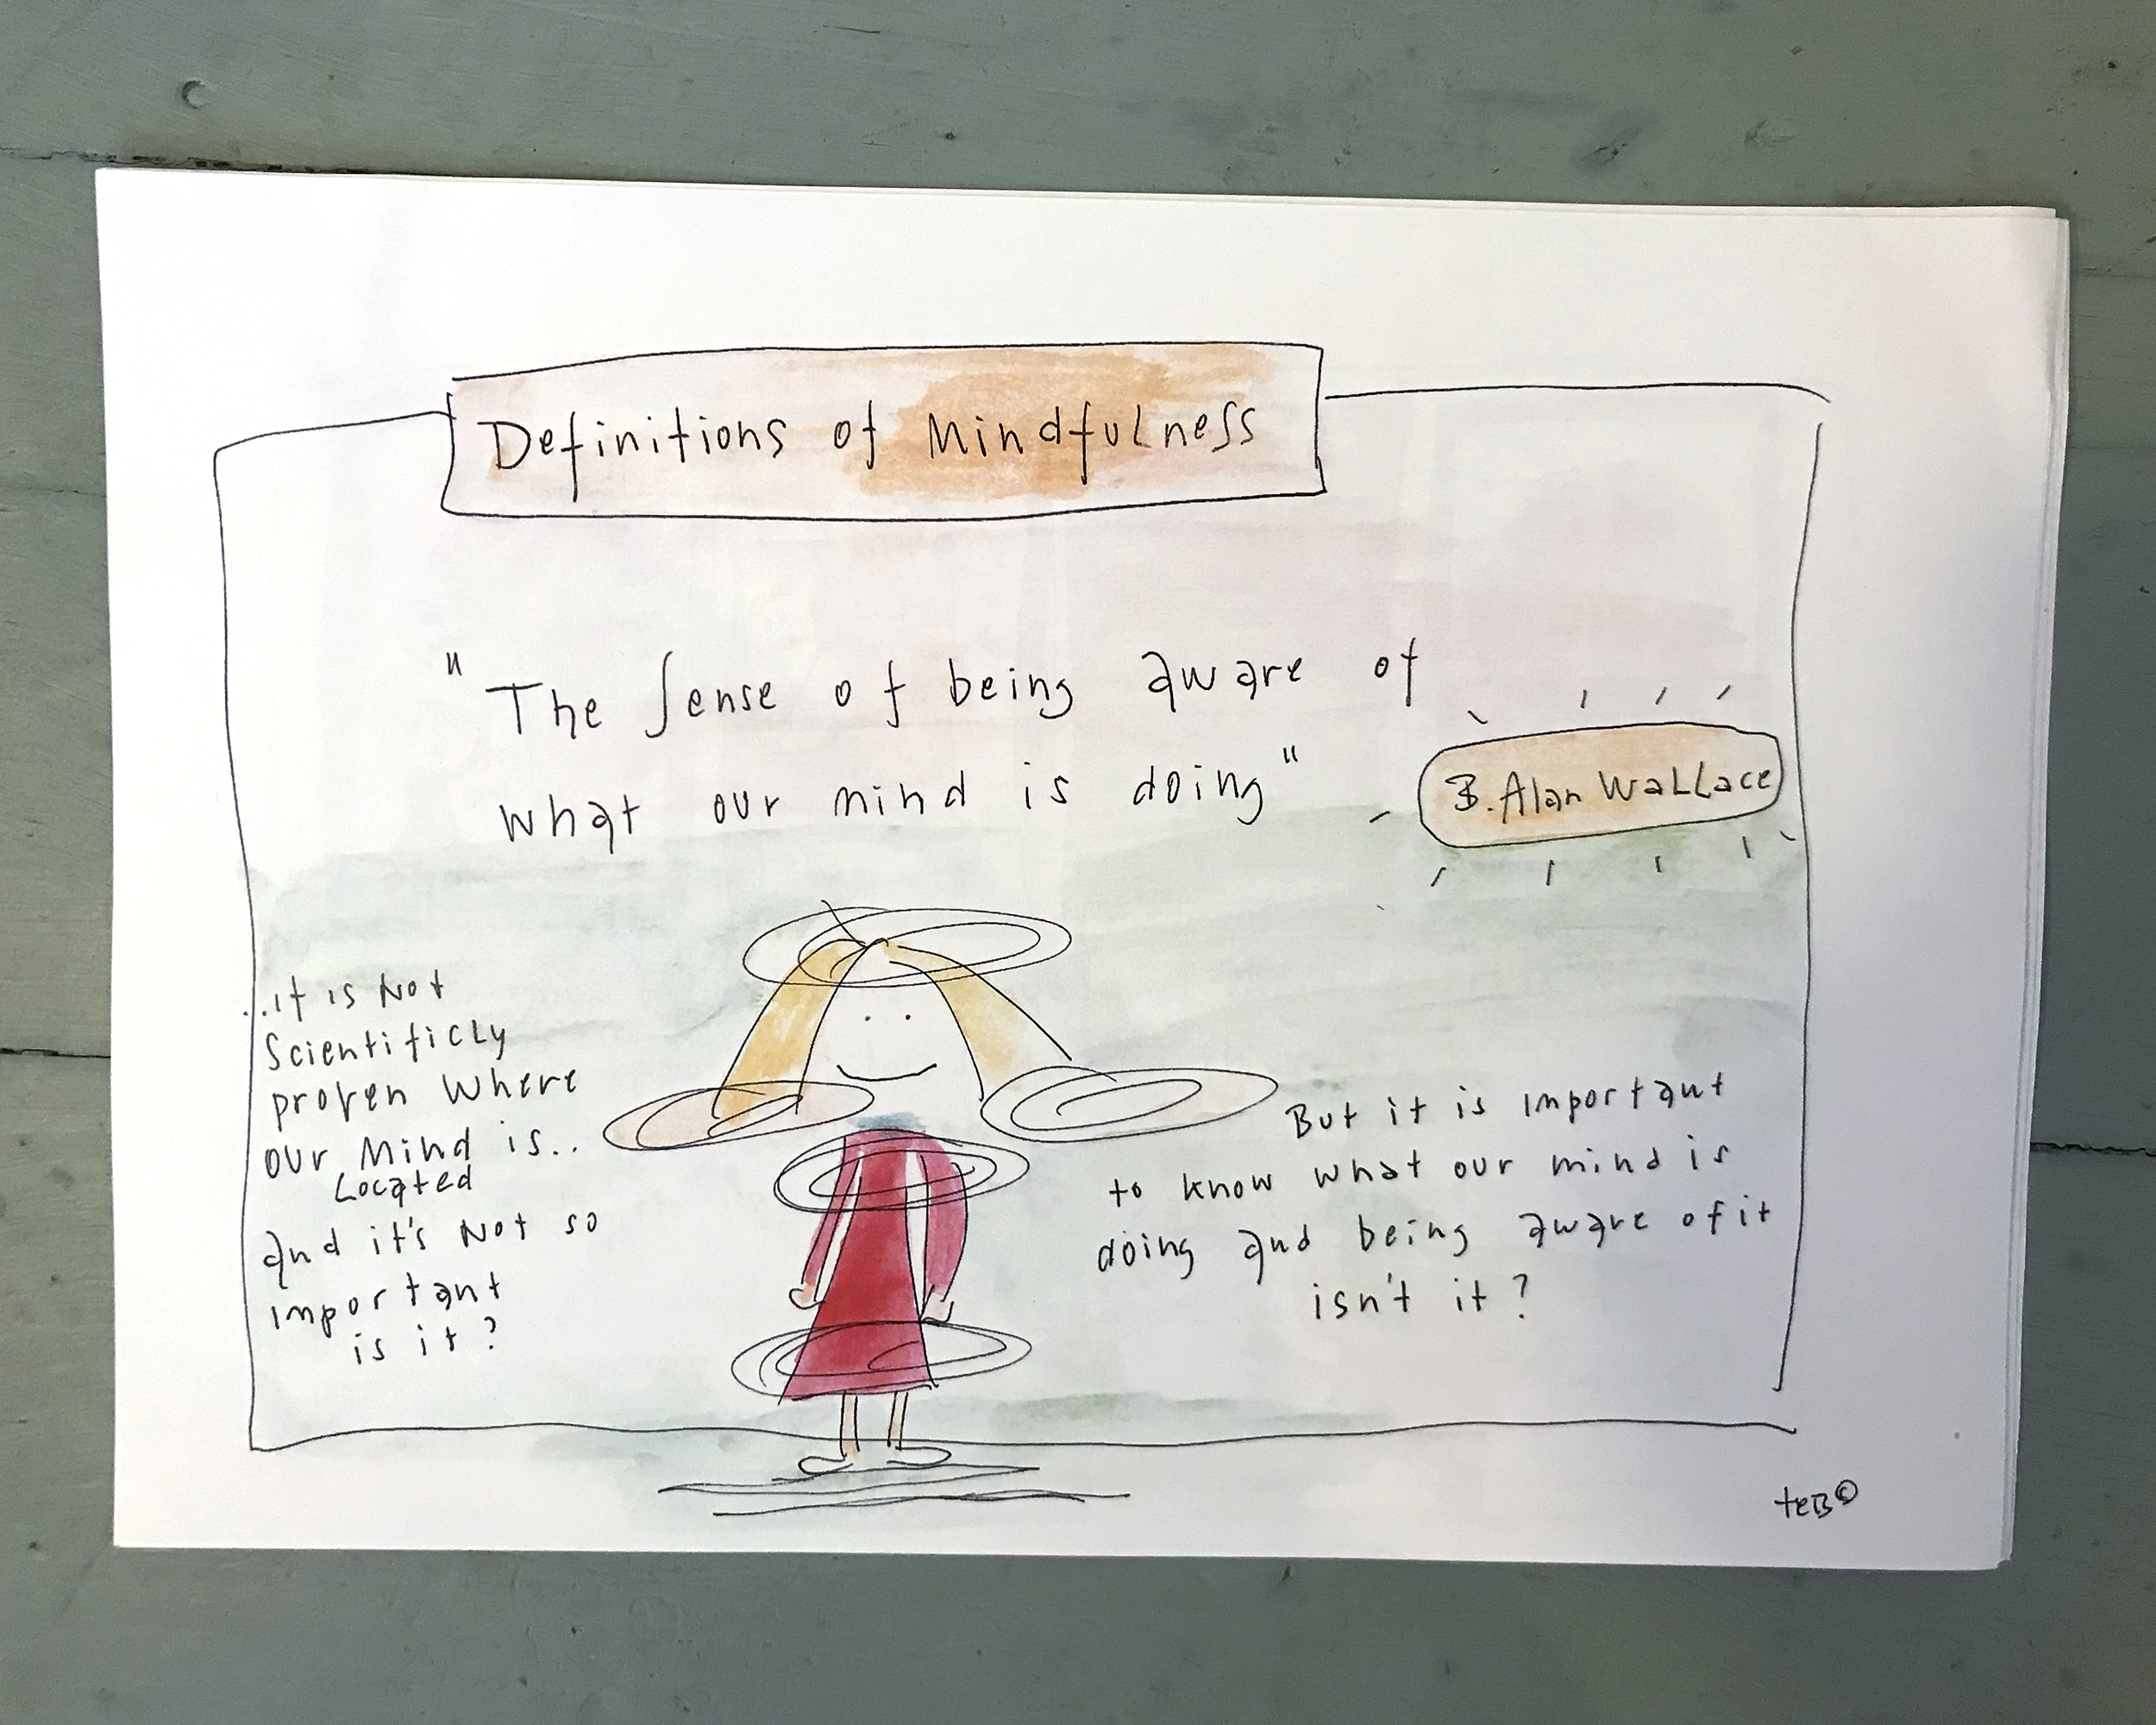 Definitions of Mindfulness
"The sense of being aware of
what our mind is doing"
B. Alan Wallace
...it is not
scientificly
proven where
our mind is..
Located
and it's not so
important
is it?
But it is important
to know what our mind is
doing and being aware of it
isn't it?
teB©